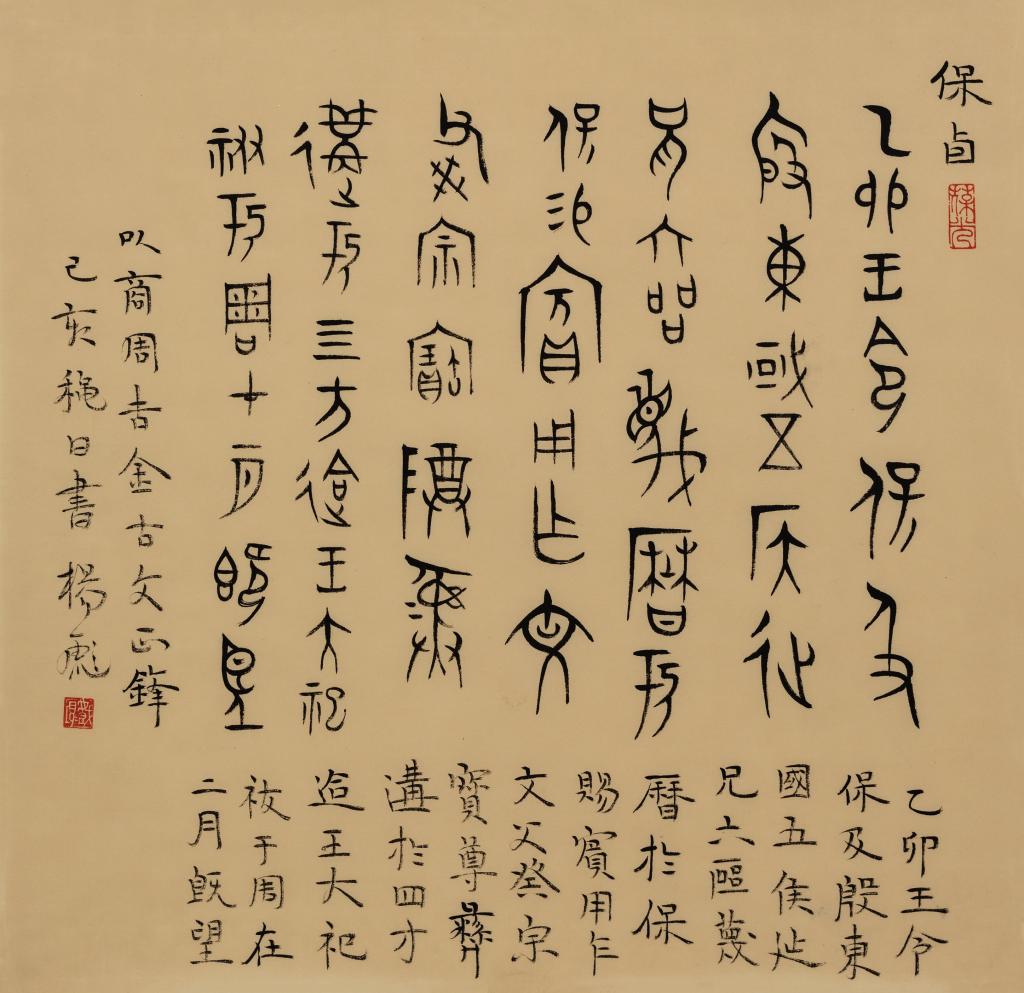 保卣
乙卯王令保及
殷東或五侯征
兄六品蔑曆于
保易賓用乍文
父癸宗寶尊彝
遘于四方迨王大祀
祓于周才二月既望
乙卯王令
保及殷東
國五侯延
兄六區蔑
曆於保
賜賓用乍
文父癸宗
寶尊彝
溝於四方
迨王大祀
祓于周在
二月既望
以商周吉金古文正鋒
己亥穐日書楊彪